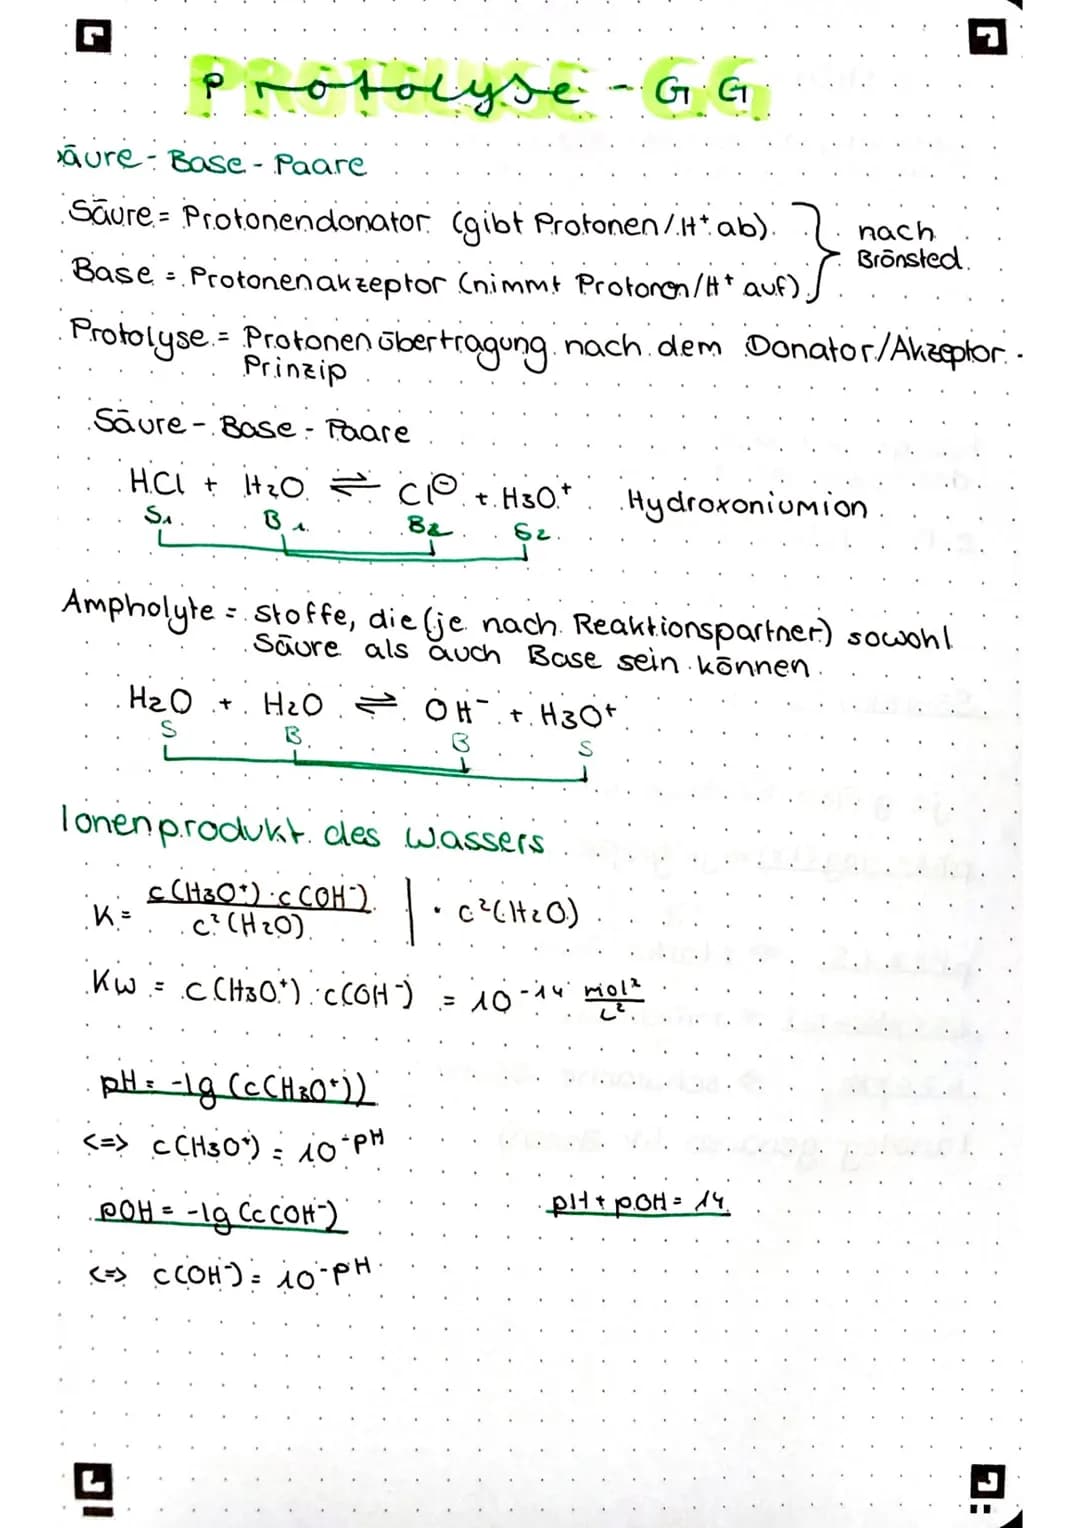 Protolyse - GG
Säure - Base - Paare
Säure = Protonendonator (gibt Protonen/H⁺ ab).
nach
Brönsted
Base = Protonenakzeptor (nimmt Protonen/H⁺ auf)
Protolyse = Protonenübertragung nach dem Donator/Akzeptor-
Prinzip
Säure - Base - Paare
HCl + H₂O ⇌ Cl⊖ + H₃O⁺ Hydroxoniumion
S₁ B₁ B₂ S₂
Ampholyte = Stoffe, die (je nach Reaktionspartner) sowohl
Säure als auch Base sein können
H₂O + H₂O ⇌ OH⁻ + H₃O⁺
S B B S
Ionenprodukt des Wassers
K = c(H₃O⁺) · c(OH⁻) / c²(H₂O) | · c²(H₂O)
Kw = c(H₃O⁺) · c(OH⁻) = 10⁻¹⁴ mol²/L²
pH = -lg (c(H₃O⁺))
<=> c(H₃O⁺) = 10⁻ᵖᴴ
pOH = -lg (c(OH⁻) pH + pOH = 14
<=> c(OH⁻) = 10⁻ᵖᴴ